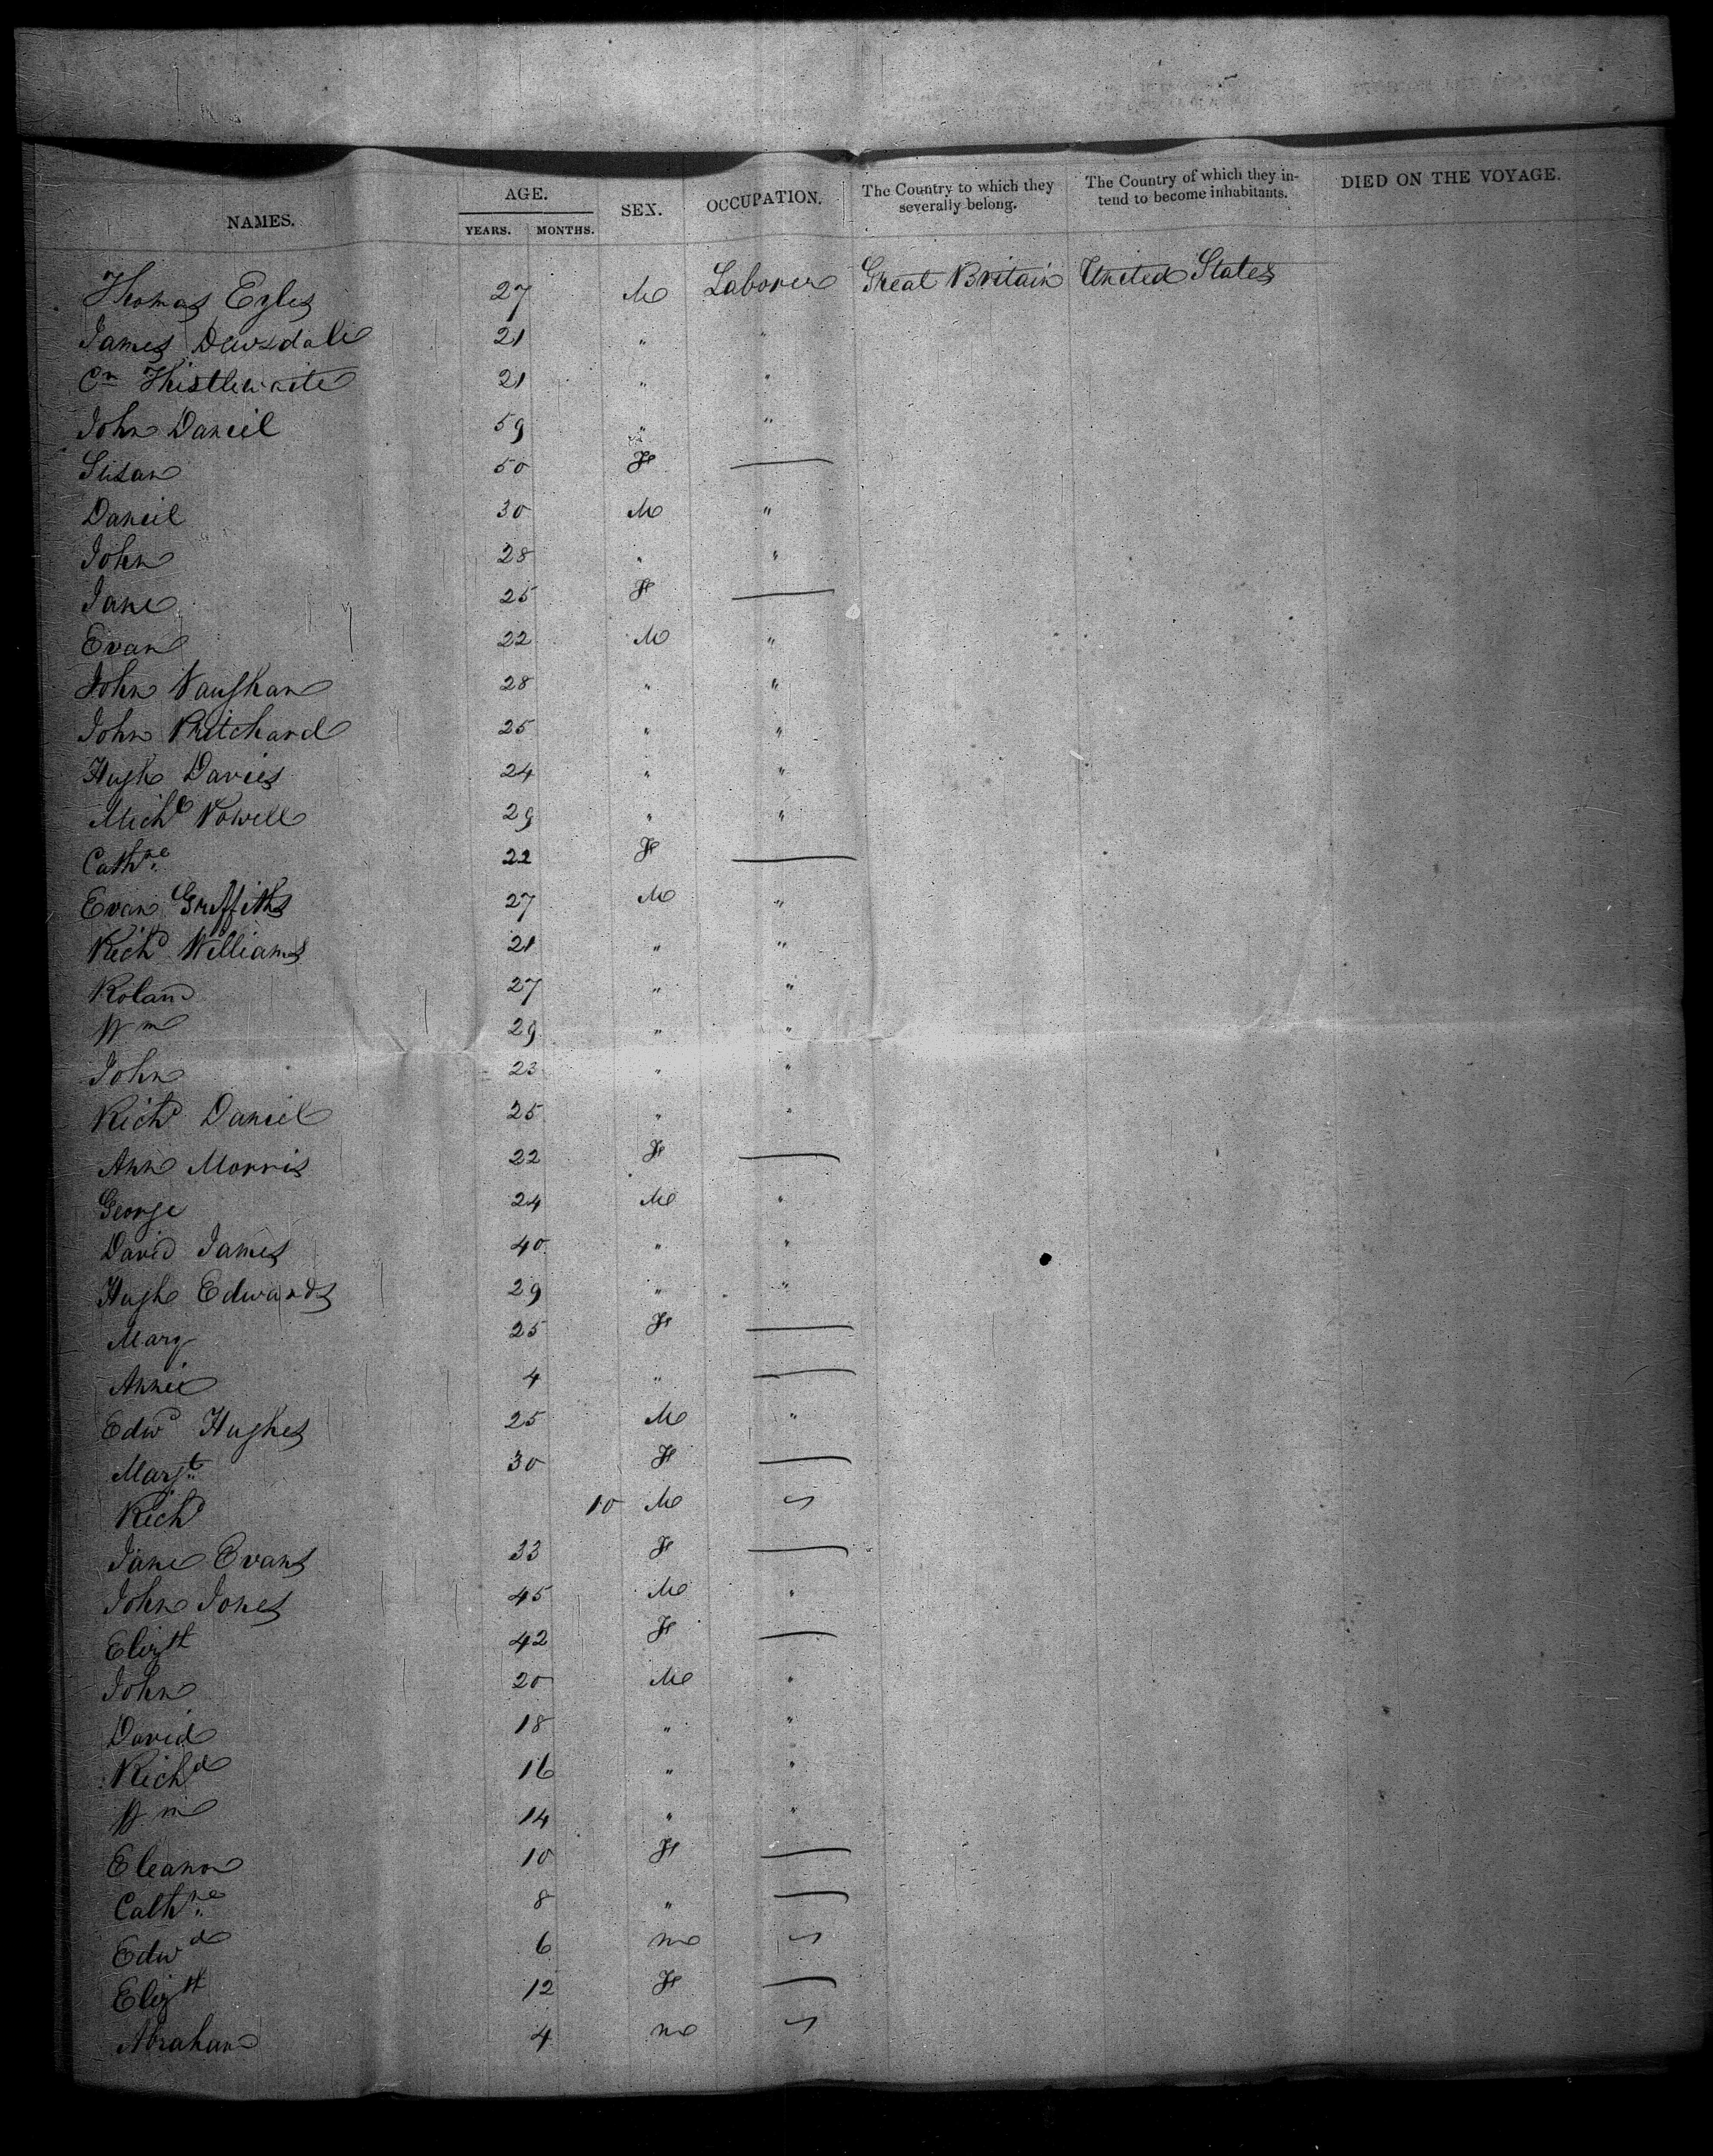 NAMES. AGE. YEARS. MONTHS. SEX. OCCUPATION. The Country to which they severally belong. The Country of which they intend to become inhabitants. DIED ON THE VOYAGE.
Thomas Eyles 27 M Laborer Great Britain United States
James Dewsdale 21 " "
Cn Thistlewaite 21 " "
John Daniel 59 " "
Susan 50 F —
Daniel 30 M "
John 28 " "
Jane 25 F —
Evan 22 M "
John Vaughan 28 " "
John Pritchard 25 " "
Hugh Davies 24 " "
Michl Powell 29 " "
Cathne 22 F —
Evan Griffiths 27 M "
Richd Williams 21 " "
Roland 27 " "
Wm 29 " "
John 23 " "
Richd Daniel 25 " "
Ann Morris 22 F —
George 24 M "
David James 40 " "
Hugh Edwards 29 " "
Mary 25 F —
Annie 4 " —
Edwd Hughes 25 M "
Margt 30 F —
Richd 10 M
Jane Evans 33 F —
John Jones 45 M "
Elizth 42 F —
John 20 M "
David 18 " "
Richd 16 " "
Wm 14 " "
Eleanor 10 F —
Cathne 8 " —
Edwd 6 m
Elizth 12 F —
Abraham 4 m